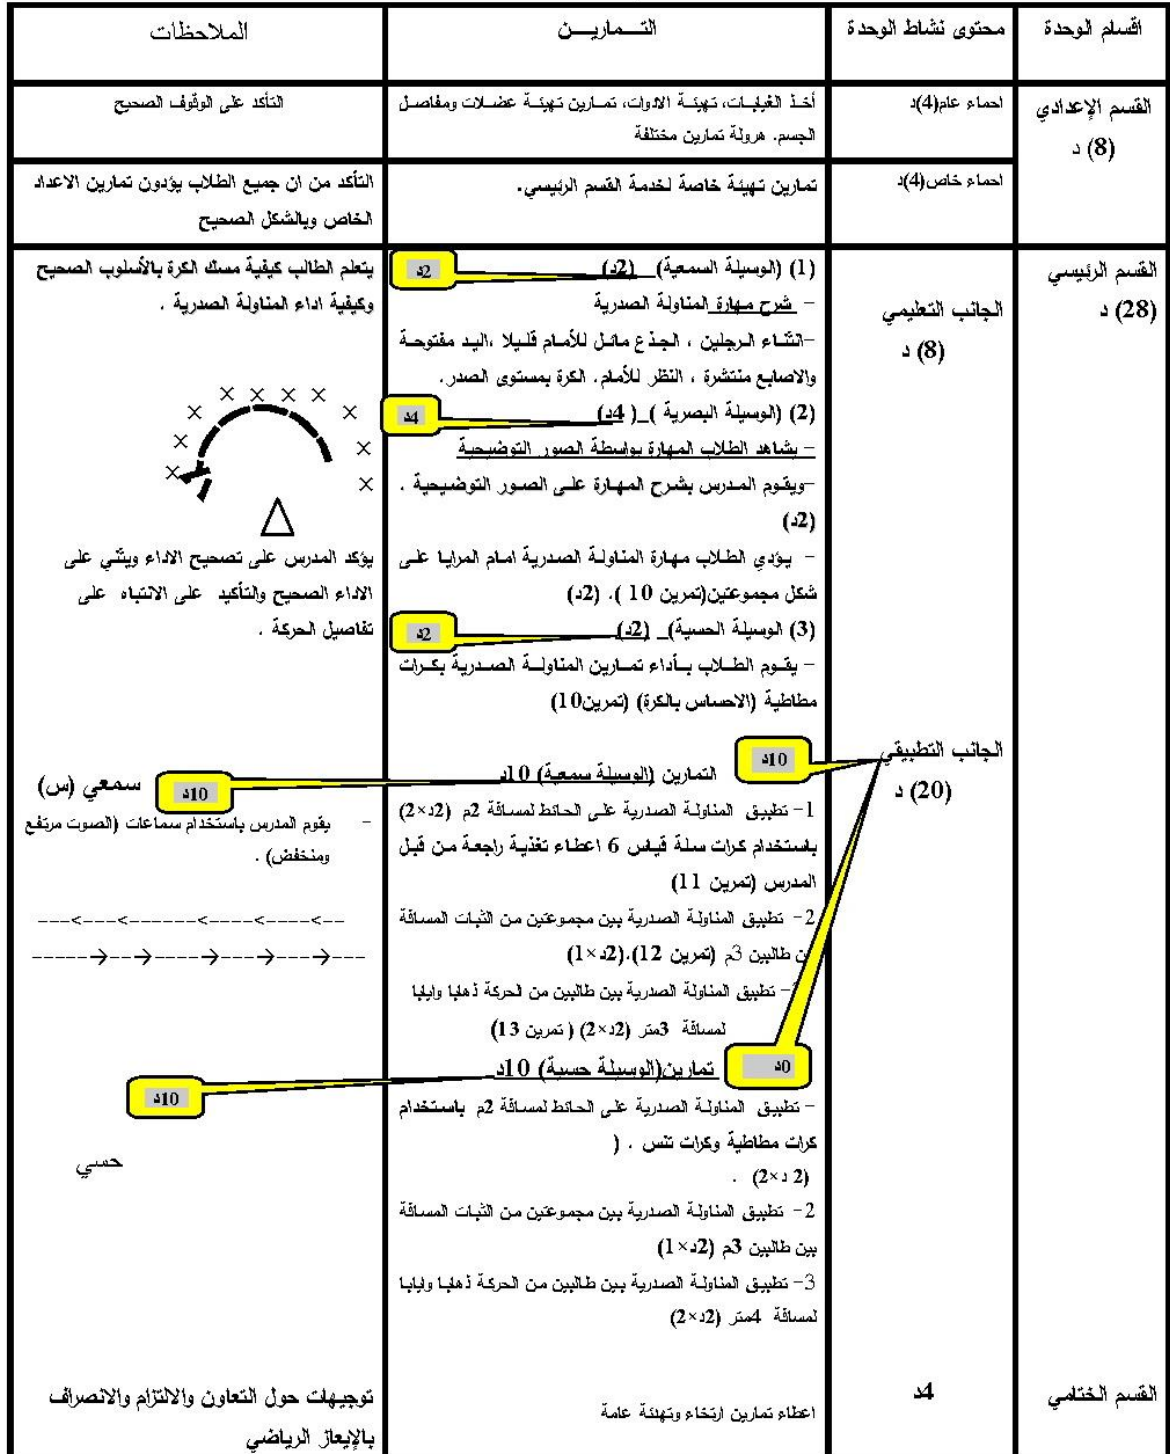 اقسام الوحدة
محتوى نشاط الوحدة
التـــماريـــن
الملاحظات
القسم الإعدادي
(8) د
احماء عام(4)د
أخذ الغيابات، تهيئة الادوات، تمارين تهيئة عضلات ومفاصل
الجسم. هرولة تمارين مختلفة
التأكد على الوقوف الصحيح
احماء خاص(4)د
تمارين تهيئة خاصة لخدمة القسم الرئيسي.
التأكد من ان جميع الطلاب يؤدون تمارين الاعداد
الخاص وبالشكل الصحيح
القسم الرئيسي
(28) د
الجانب التعليمي
(8) د
(1) (الوسيلة السمعية) (2د)
2د
– شرح مهارة المناولة الصدرية
–انثناء الرجلين ، الجذع مائل للأمام قليلا ،اليد مفتوحة
والاصابع منتشرة ، النظر للأمام. الكرة بمستوى الصدر.
(2) (الوسيلة البصرية ) ( 4د)
4د
– يشاهد الطلاب المهارة بواسطة الصور التوضيحية
–ويقوم المدرس بشرح المهارة على الصور التوضيحية .
(2د)
– يؤدي الطلاب مهارة المناولة الصدرية امام المرايا على
شكل مجموعتين(تمرين 10 ). (2د)
(3) (الوسيلة الحسية) (2د)
2د
– يقوم الطلاب بأداء تمارين المناولة الصدرية بكرات
مطاطية (الاحساس بالكرة) (تمرين10)
يتعلم الطالب كيفية مسك الكرة بالأسلوب الصحيح
وكيفية اداء المناولة الصدرية .
يؤكد المدرس على تصحيح الاداء ويثني على
الاداء الصحيح والتأكيد على الانتباه على
تفاصيل الحركة .
الجانب التطبيقي
(20) د
10د
التمارين (الوسيلة سمعية) 10د
10د
1– تطبيق المناولة الصدرية على الحائط لمسافة 2م (2د×2)
باستخدام كرات سلة قياس 6 اعطاء تغذية راجعة من قبل
المدرس (تمرين 11)
2– تطبيق المناولة الصدرية بين مجموعتين من الثبات المسافة
طالبين 3م (تمرين 12).(2د×1)
– تطبيق المناولة الصدرية بين طالبين من الحركة ذهابا وايابا
لمسافة 3متر (2د×2) ( تمرين 13)
سمعي (س)
– يقوم المدرس باستخدام سماعات (الصوت مرتفع
ومنخفض) .
0د
تمارين(الوسيلة حسية) 10د
10د
– تطبيق المناولة الصدرية على الحائط لمسافة 2م باستخدام
كرات مطاطية وكرات تنس . (
(2 د×2) .
2– تطبيق المناولة الصدرية بين مجموعتين من الثبات المسافة
بين طالبين 3م (2د×1)
3– تطبيق المناولة الصدرية بين طالبين من الحركة ذهابا وايابا
لمسافة 4متر (2د×2)
حسي
القسم الختامي
4د
اعطاء تمارين ارتخاء وتهدئة عامة
توجيهات حول التعاون والالتزام والانصراف
بالإيعاز الرياضي